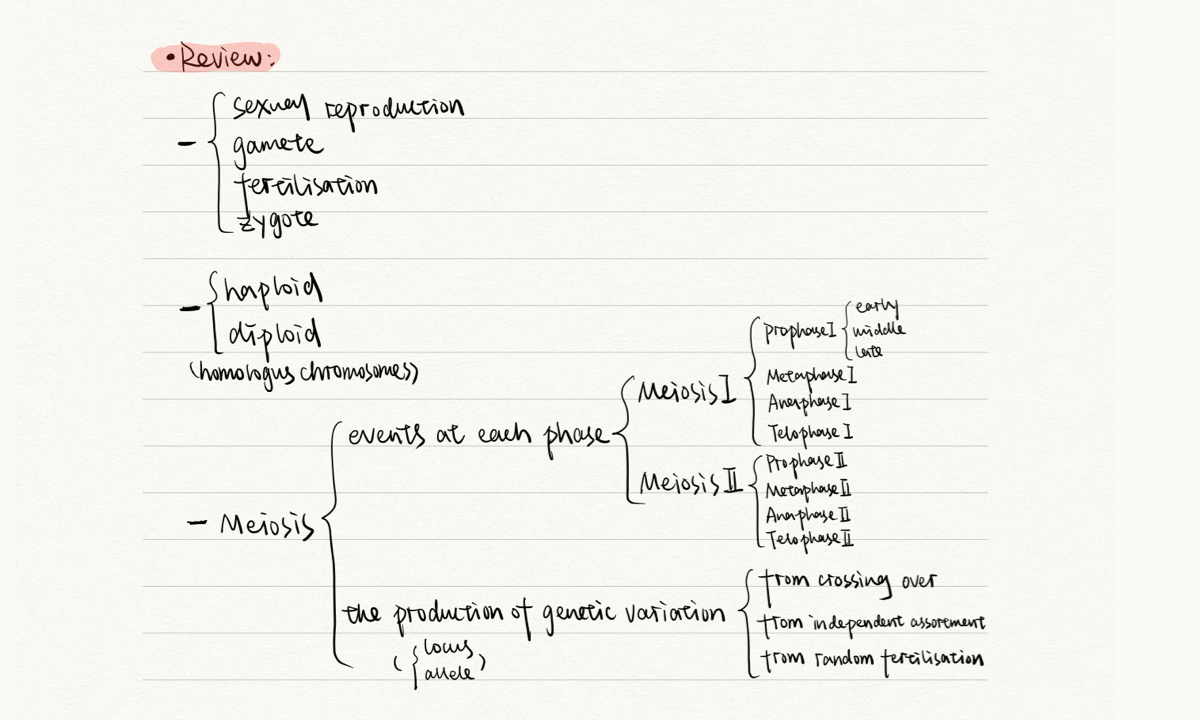 • Review:
- sexual reproduction
gamete
fertilisation
zygote
- haploid
diploid
(homologus chromosomes)
- Meiosis
events at each phase
Meiosis I
Prophase I
early
middle
late
Metaphase I
Anaphase I
Telophase I
Meiosis II
Prophase II
Metaphase II
Anaphase II
Telophase II
the production of genetic variation
(locus
allele)
from crossing over
from independent assorement
from random fertilisation